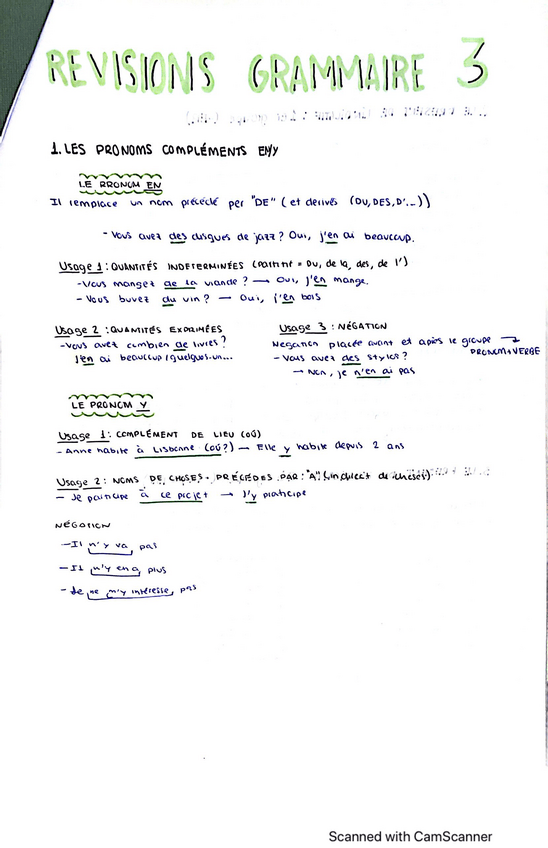 REVISIONS GRAMMAIRE 3
1. LES PRONOMS COMPLÉMENTS EN/Y
LE PRONOM EN
Il remplace un nom précédé per "DE" (et derivés (DU, DES, D'...))
- Vous avez des disques de jazz? Oui, j'en ai beaucoup.
Usage 1: QUANTITÉS INDETERMINÉES (partitif = du, de la, des, de l')
- Vous mangez de la viande? → Oui, j'en mange.
- Vous buvez du vin? — Oui, j'en bois
Usage 2: QUANTITÉS EXPRIMÉES
- Vous avez combien de livres?
J'en ai beaucoup/quelques-un...
Usage 3: NÉGATION
Negation placée avant et après le groupe →
PRONOM+VERBE
- Vous avez des stylos?
→ Non, je n'en ai pas
LE PRONOM Y
Usage 1: COMPLÉMENT DE LIEU (OÙ)
- Anne habite à Lisbonne (où?) → Elle y habite depuis 2 ans
Usage 2: NOMS DE CHOSES PRÉCÉDÉS PAR: "À" (indirect de choses)
- Je participe à ce projet → J'y participe
NÉGATION
- Il n'y va pas
- Il n'y en a plus
- Je ne m'y intéresse pas
Scanned with CamScanner